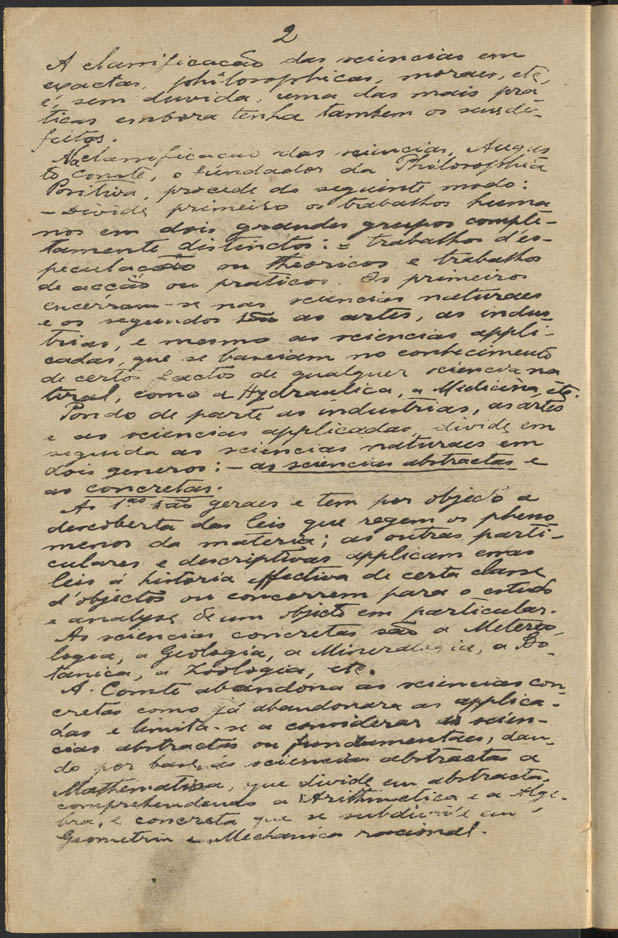 2
A classificação das sciencias em
exactas, philosophicas, moraes, etc,
é, sem duvida, uma das mais pra
ticas embora tenha tambem os seus de-
feitos.
Na classificacao das sciencias, Augus
to Comte, o fundador da Philosophia
Positiva, procede do seguinte modo:
— Divide primeiro os trabalhos huma
nos em dois grandes grupos comple-
tamente distinctos: = trabalhos d'es-
peculação ou theoricos e trabalhos
de acção ou praticos. Os primeiros
encerram-se nas sciencias naturaes
e os segundos são as artes, as indus
trias, e mesmo as sciencias appli-
cadas, que se baseiam no conhecimento
de certos factos de qualquer sciencia na
tural, como a Hydraulica, a Medicina, etc.
Pondo de parte as industrias, as artes
e as sciencias applicadas, divide em
seguida as sciencias naturaes em
dois generos: — as sciencias abstractas e
as concretas.
As 1.as são geraes e tem por objecto a
descoberta das leis que regem os pheno
menos da materia; as outras parti-
culares e descriptivas applicam essas
leis á historia effectiva de certa classe
d'objectos ou concorrem para o estudo
e analyse de um objecto em particular.
As sciencias concretas são a Metereo-
logia, a Geologia, a Mineralogia, a Bo-
tanica, a Zoologia, etc.
A. Comte abandona as sciencias con-
cretas como já abandonara as applica-
das e limita-se a considerar as scien-
cias abstractas ou fundamentaes, dan-
do por base ás sciencias abstractas a
Mathematica, que divide em abstracta,
comprehendendo a Arithmetica e a Alge-
bra, e concreta que se subdivide em
Geometria e Mechanica racional.